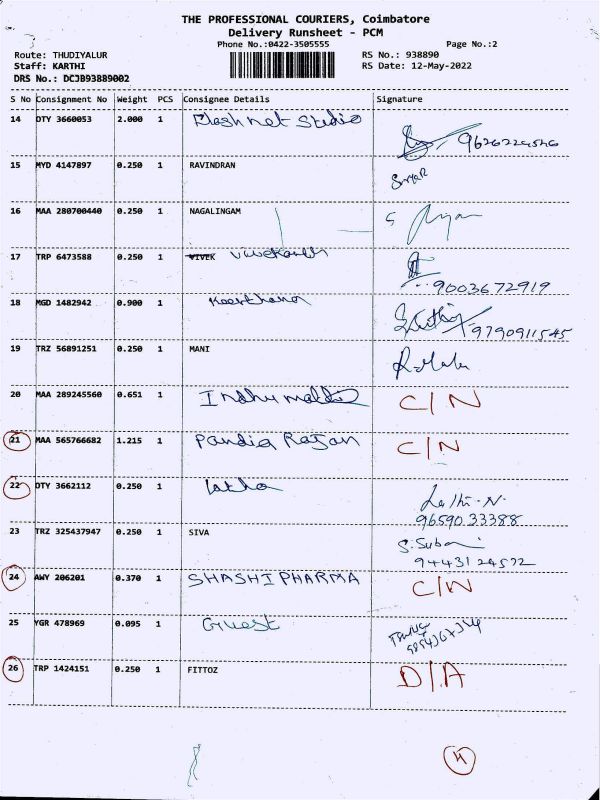 THE PROFESSIONAL COURIERS, Coimbatore
Delivery Runsheet - PCM
Phone No.:0422-3505555 Page No.:2
Route: THUDIYALUR RS No.: 938890
Staff: KARTHI RS Date: 12-May-2022
DRS No.: DCJB93889002
S No Consignment No Weight PCS Consignee Details Signature
14 DTY 3660053 2.000 1 Flash net Studio
15 MYD 4147897 0.250 1 RAVINDRAN
16 MAA 280700440 0.250 1 NAGALINGAM
17 TRP 6473588 0.250 1 VIVEK Vivekanth
9003672919
18 MGD 1482942 0.900 1 Keerthana
9790911545
19 TRZ 56891251 0.250 1 MANI
20 MAA 289245560 0.651 1 C/N
21 MAA 565766682 1.215 1 Pandia Rajan C/N
22 DTY 3662112 0.250 1 Latha
9659033388
23 TRZ 325437947 0.250 1 SIVA
9443124572
24 AWY 206201 0.370 1 SHASHI PHARMA C/N
25 YGR 478969 0.095 1 Guest
26 TRP 1424151 0.250 1 FITTOZ D/A